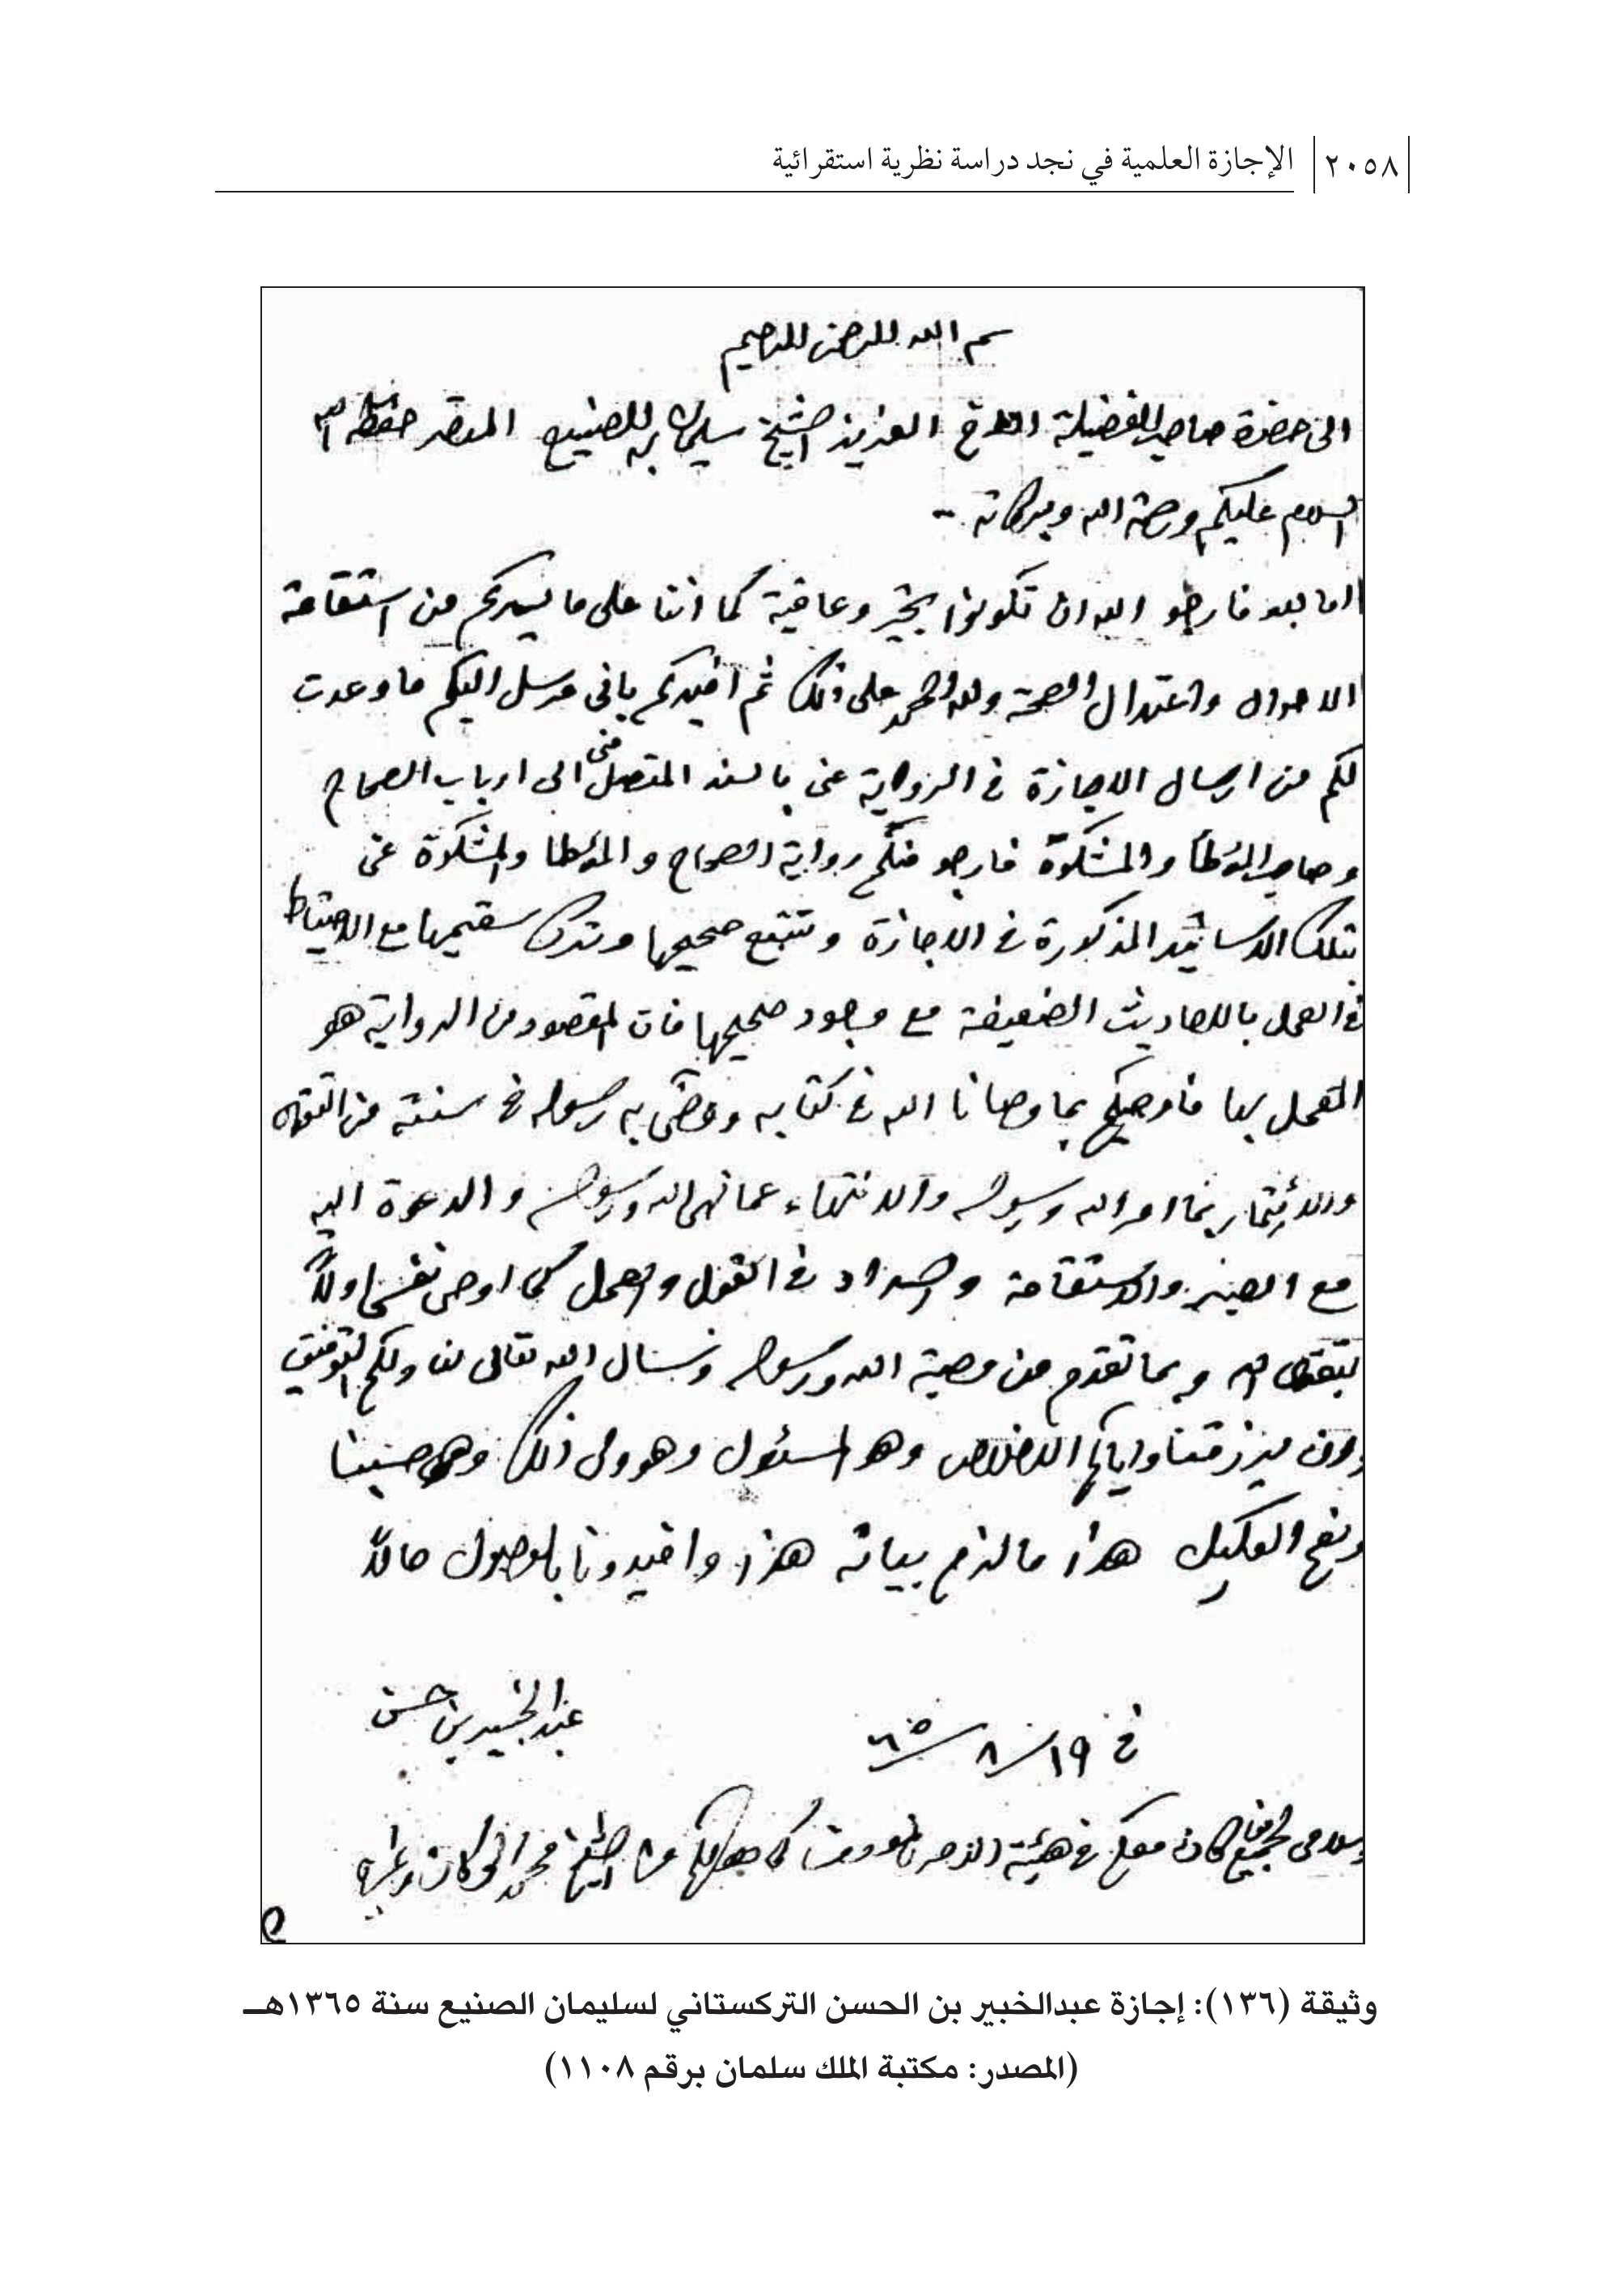 ٢٠٥٨ الإجازة العلمية في نجد دراسة نظرية استقرائية
بسم الله الرحمن الرحيم
الى حضرة صاحب الفضيلة الاخ العزيز الشيخ سليمان الصنيع الموقر حفظه الله
السلام عليكم ورحمة الله وبركاته --
اما بعد فارجو الله ان تكونوا بخير وعافية كما اننا على ما يسركم من استقامة
الاحوال واعتدال الصحة ولله الحمد على ذلك ثم افيدكم بانى مرسل اليكم ما وعدت
لكم من ارسال الاجازة فى الرواية عنى بالسند المتصل منى الى ارباب الصحاح
وصاحب المؤطأ والمشكوة فارجو منكم رواية الصحاح والمؤطا والمشكوة عنى
بتلك الاسانيد المذكورة فى الاجازة وتتبع صحيحها وترك سقيمها مع الاحتياط
فى العمل بالاحاديث الضعيفة مع وجود صحيحها فان المقصود من الرواية هو
العمل بها فاوصيكم بما وصانا الله فى كتابه ووصى به رسوله فى سنته من التقوى
والائتمار بما امر الله ورسوله والانتهاء عما نهى الله ورسوله والدعوة اليه
مع الصبر والاستقامة والسداد فى القول والعمل كما اوصى نفسى اولاً
بتقوى الله وبما تقدم من وصية الله ورسوله ونسال الله تعالى لنا ولكم التوفيق
وان يرزقنا واياكم الاخلاص وهو المسئول وهو ولى ذلك وهو حسبنا
ونعم الوكيل هذا ما لزم بيانه هذا وافيدونا بالوصول حالاً
عبد الخبير بن حسن
فى ١٩/٨/٦٥
وسلامى لجميع من كان معكم فى هيئة الامر بالمعروف كما الشيخ محمد
وثيقة (١٣٦): إجازة عبدالخبير بن الحسن التركستاني لسليمان الصنيع سنة ١٣٦٥هـ
(المصدر: مكتبة الملك سلمان برقم ١١٠٨)